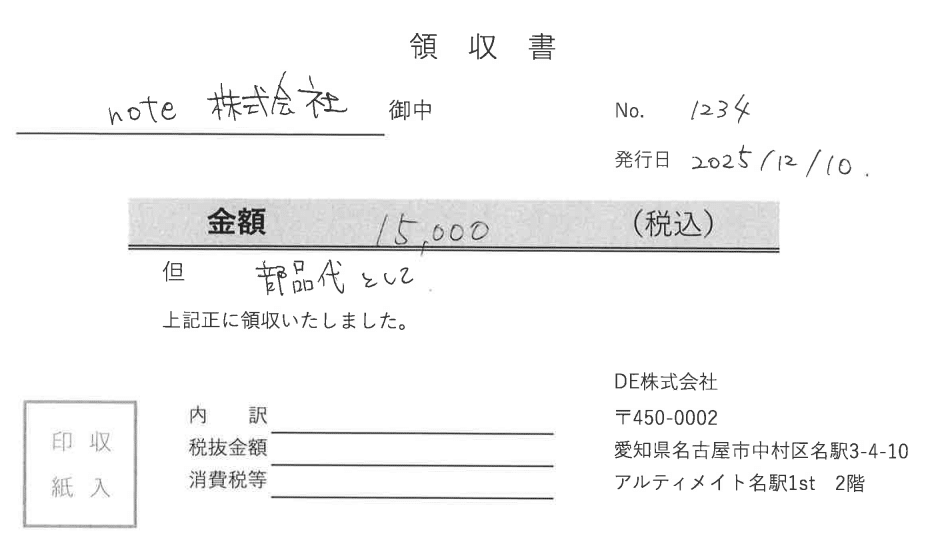 領収書
note 株式会社 御中
No. 1234
発行日 2025/12/10.
金額 15,000 (税込)
但 部品代として.
上記正に領収いたしました。
DE株式会社
〒450-0002
愛知県名古屋市中村区名駅3-4-10
アルティメイト名駅1st 2階
内訳
税抜金額
消費税等
印収
紙入